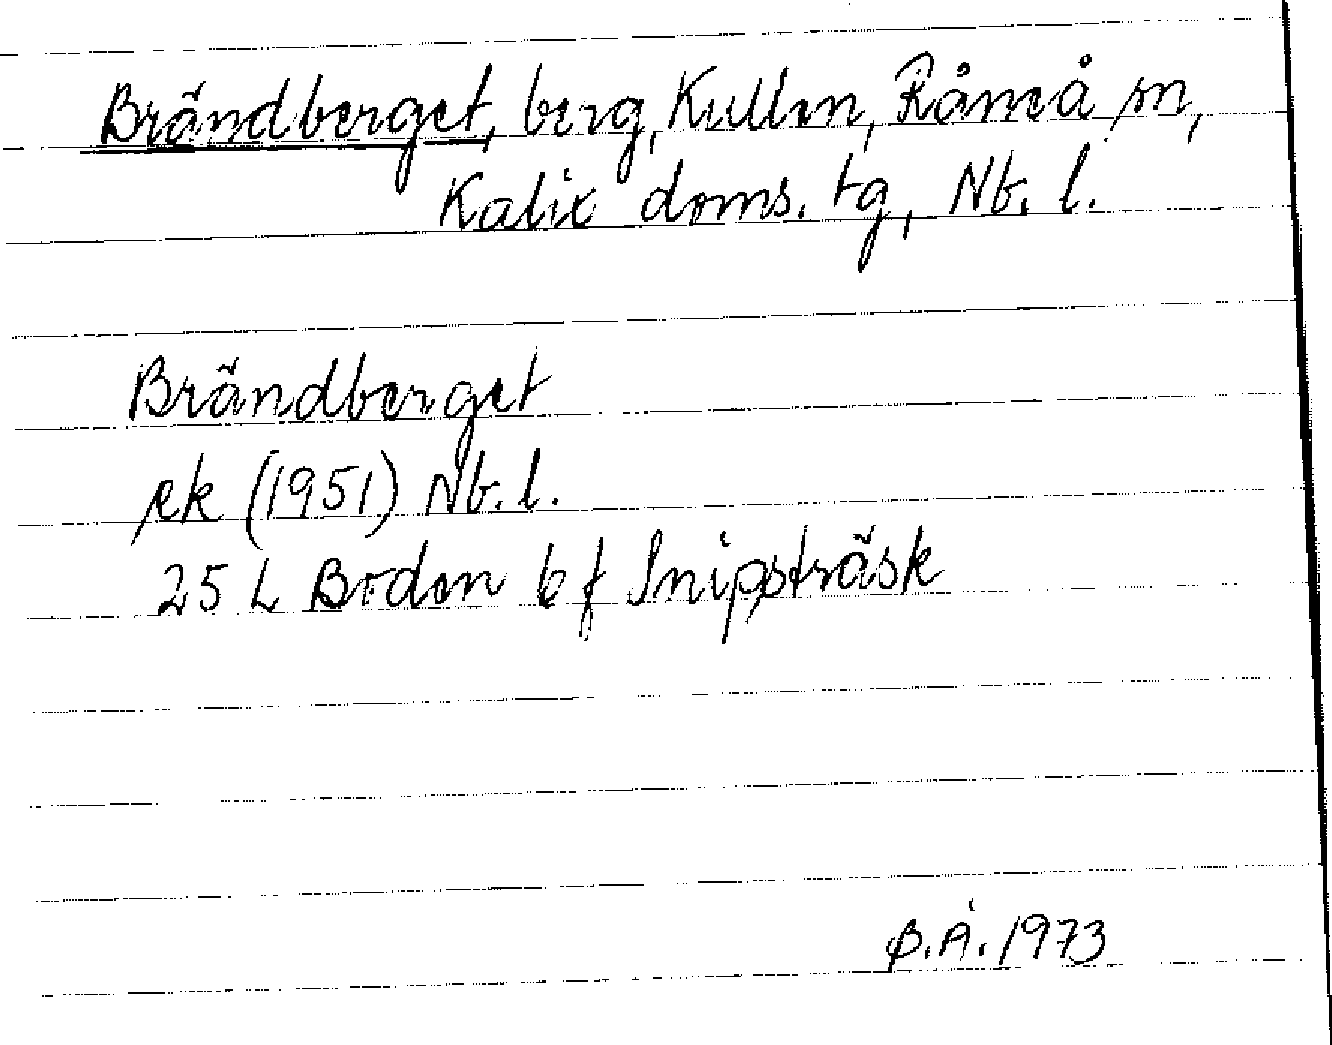 Brändberget, berg, Kullen, Råneå sn,
Kalix doms. tg, Nb. l.
Brändberget
ek (1951) Nb. l.
25 L Boden 6 f Snipsträsk
B.Å. 1973